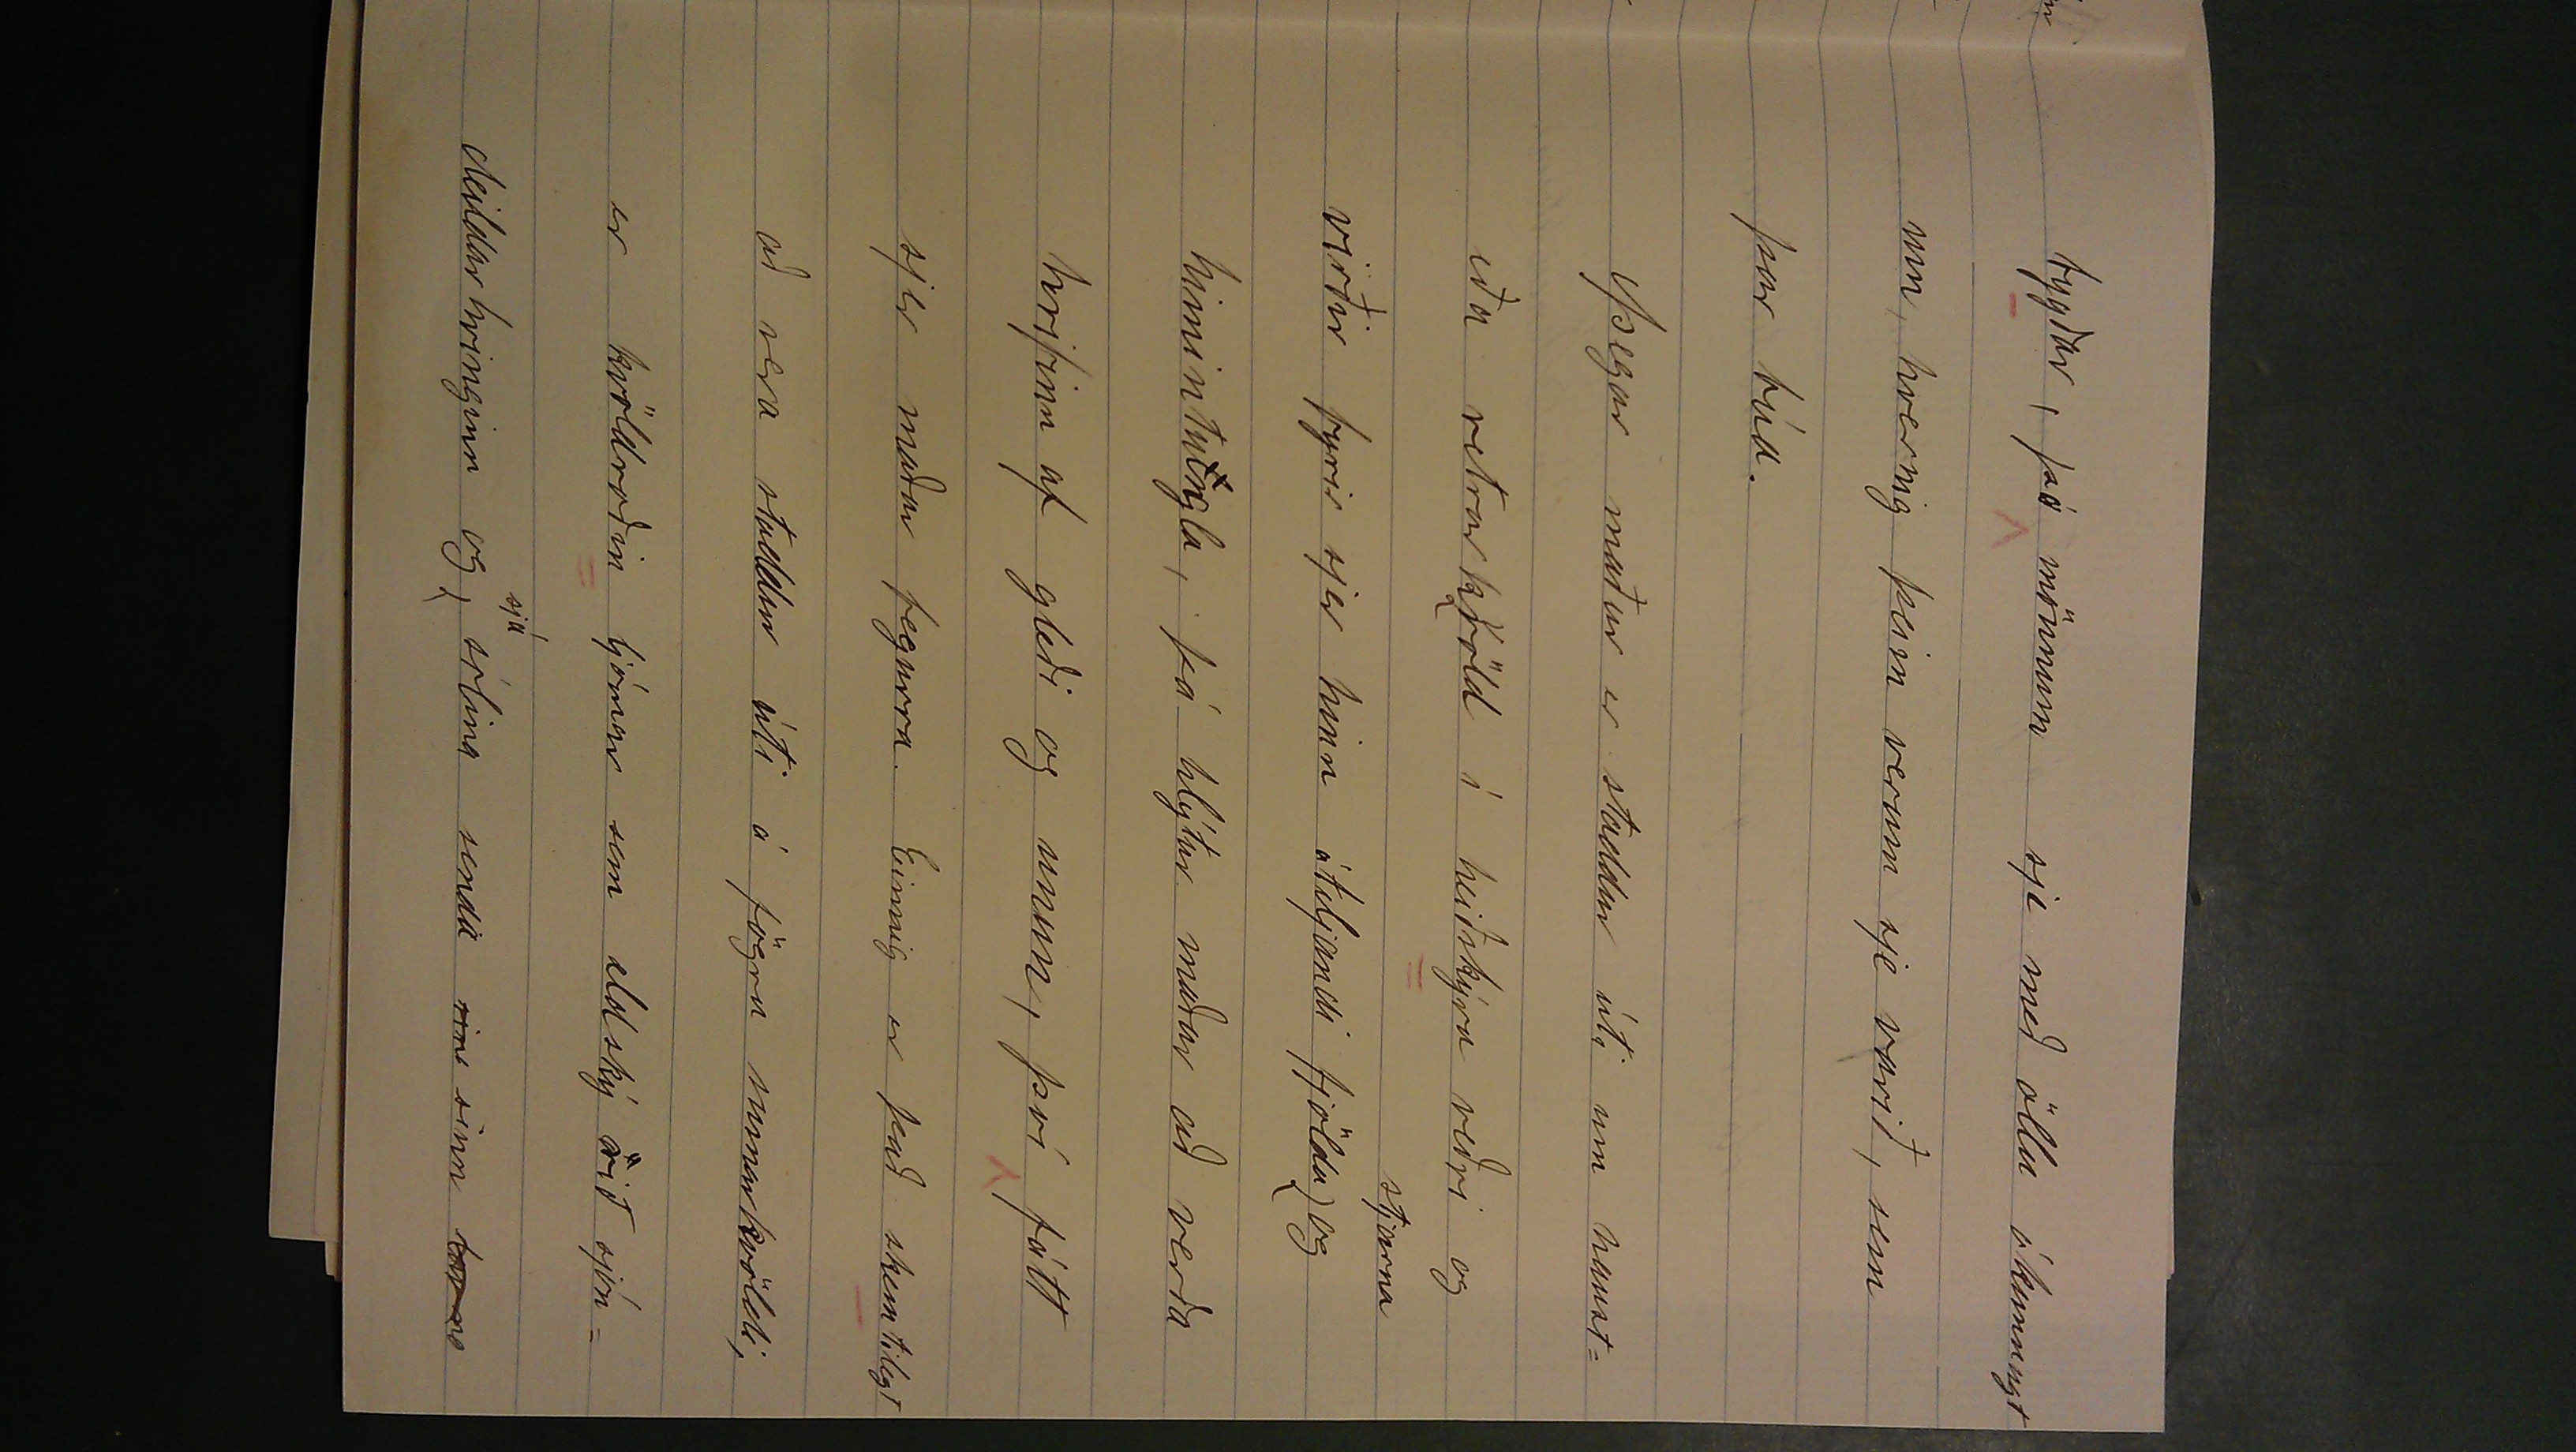 bygðar, þó mönnum sje með öllu ókunnugt
um, hvernig þeim verum sje varið, sem
þar búa.
Þegar maður er staddur úti um haust=
eða vetrarkvöld í heiðskýru veðri og
virðir fyrir sjer hinn óteljandi fjölda stjörna og
himintungla, þá hlýtur maður að verða
hrifinn af gleði og unun, því fátt
sjer maður fegurra. Einnig er það skemtilegt
að vera staddur úti á fögru sumarkvöldi,
er kvöldroðin ljómar sem eldský við sjón=
deildarhringinn og sjá sólina senda sinn